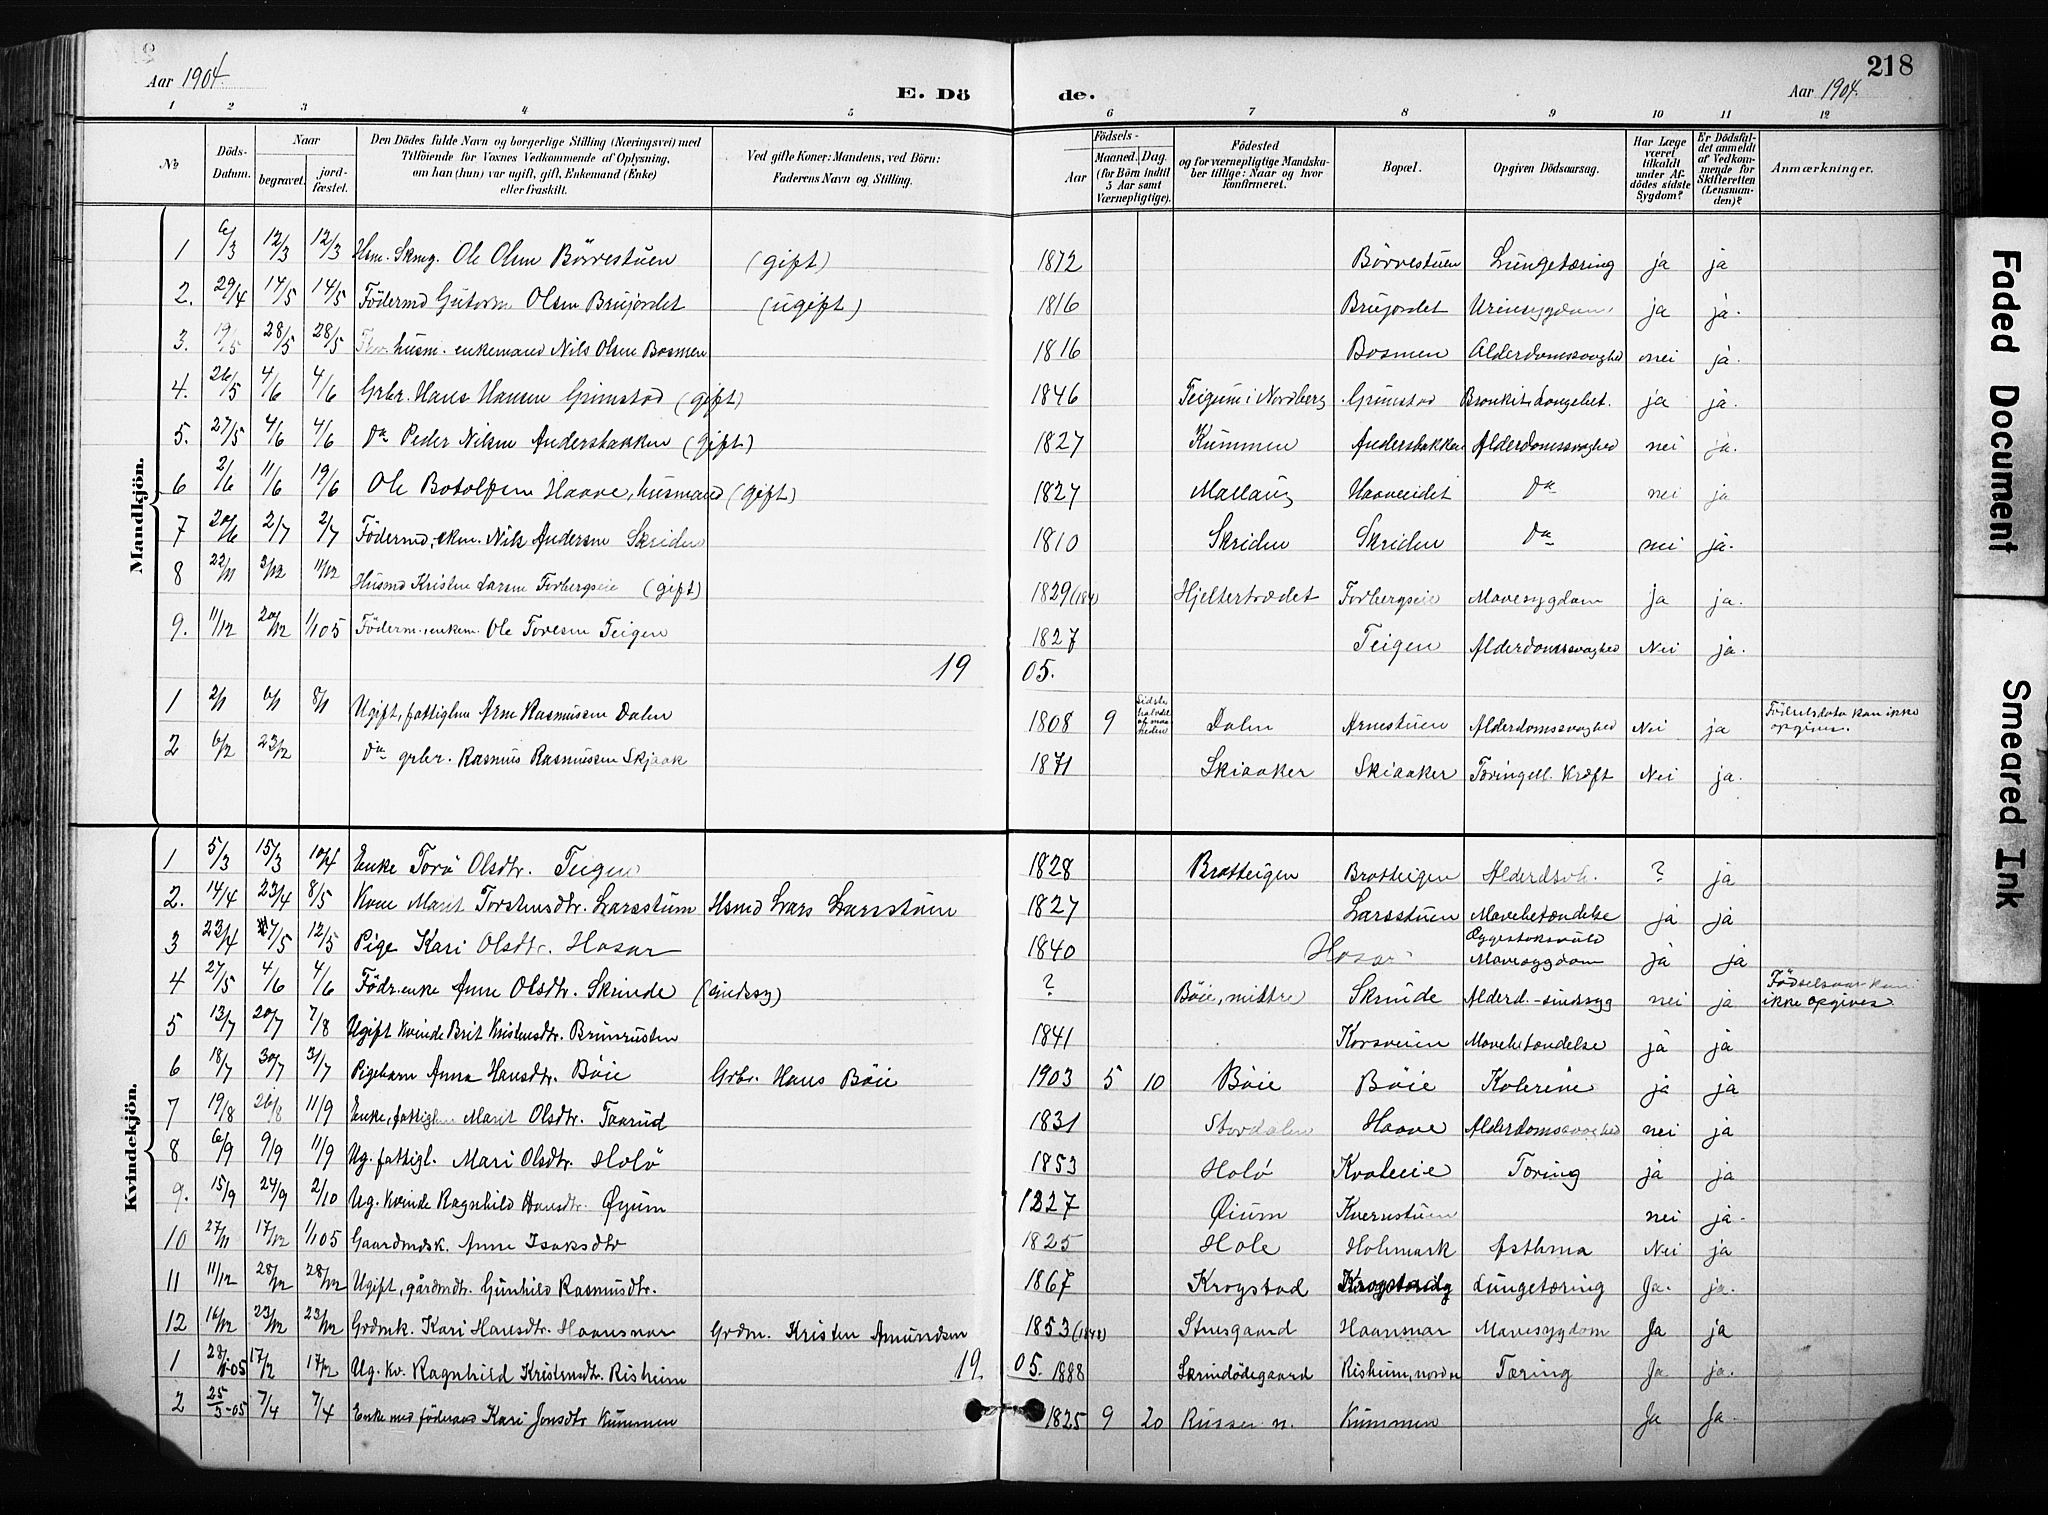 218
Aar 1904.
E. Döde.
Aar 1904.
1 2 3 4 5 6 7 8 9 10 11 12
No
Döds-Datum.
Naar
begravet.
jord-fæstet.
Den Dödes fulde Navn og borgerlige Stilling (Næringsvei) med
Tilföiende for Voxnes Vedkommende af Oplysning,
om han (hun) var ugift, gift, Enkemand (Enke)
eller fraskilt.
Ved gifte Koner: Mandens, ved Börn:
Faderens Navn og Stilling.
Födsels-
Aar
Maaned.
Dag.
(for Börn indtil
5 Aar samt
Værnepligtige).
Födested
og for værnepligtige Mandska-
ber tillige: Naar og hvor
konfirmeret.
Bopæl.
Opgiven Dödsaarsag.
Har Læge
været
tilkaldt
under Af-
dödes sidste
Sygdom?
Er Dödsfal-
det anmeldt
af Vedkom-
mende for
Skifteretten
(Lensman-
den)?
Anmærkninger.
Mandkjön.
1 6/3 12/3 12/3 Hsm. Skmg. Ole Olsen Börvestuen (gift) 1872 Börvestuen Lungetæring ja ja
2. 29/4 14/5 14/5 Födermd Gutorm Olsen Brujordet (ugift) 1816 Brujordet Urinsygdom ja ja.
3. 19/5 28/5 28/5 husm. enkemand Nils Olsen Bosmen 1816 Bosmen Alderdomssvaghed nei ja.
4. 26/5 4/6 4/6 Grbr. Hans Hansen Grimstad (gift) 1846 Teigum i Nordberg Grimstad ja ja.
5. 27/5 4/6 4/6 Do Peder Nilsen Anderstakken (gift) 1827 Kummen Anderstakken Alderdomssvaghed nei ja.
6 2/6 11/6 19/6 Ole Botolfsen Haave, husmand (gift) 1827 Mallaug Haaveeidet Do nei ja
7 20/6 2/7 2/7 Födermd, ekm. Nils Andersen Skriden 1810 Skriden Skriden Do nei ja.
8 22/11 3/12 11/12 Husmd Kristen Larsen Forbergseie (gift) 1829 Hjeltertrædet Forbergseie Mavesygdom ja ja.
9. 11/12 20/12 1/1 05 Föderm., enkem. Ole Toresen Teigen 1827 Teigen Alderdomssvaghed Nei ja.
1905.
1 2/1 6/1 8/1 Ugift, fattiglem Arne Rasmussen Dalen 1808 9 Sidste halvdel af maaneden Dalen Arnestuen Alderdomssvaghed Nei ja Födselsdato kan ikke opgives.
2 6/2 23/2 Do grbr. Rasmus Rasmussen Skjaak 1871 Skiaaker Skiaaker Tæring ell. Kræft Nei ja.
Kvindekjön.
1 5/3 15/3 10/4 Enke Torö Olsdtr. Teigen 1828 Bratteigen Bratteigen Alderdsvh. ? ja
2. 14/4 23/4 8/5 Kone Marit Torstensdtr. Larsstuen Hsmd Lars Larsstuen 1827 Larsstuen Mavebetændelse ja ja
3 23/4 7/5 12/5 Pige Kari Olsdtr. Hosar 1840 Hosar Eggestoksvuld Mavesygdom ja ja
4 27/5 4/6 4/6 Födr.enke Anne Olsdtr. Skrinde (sindssy) ? Böie, mittre Skrinde Alderd.-sindsyg nei ja Födselsaar kan ikke opgives
5 13/7 20/7 7/8 Ugift Kvinde Brit Kristensdtr. Brunrusten 1841 Korsveien Mavebetændelse ja ja
6 18/7 30/7 31/7 Pigebarn Anna Hansdtr. Böie Grbr. Hans Böie 1903 5 10 Böie Böie Kolerine ja ja
7 19/8 26/8 11/9 Enke, fattiglem Marit Olsdtr. Taarud 1831 Stordalen Haave Alderdomssvaghed nei ja
8 6/9 9/9 11/9 Ug. fattigl. Mari Olsdtr. Holö 1853 Holö Kvaleeie Tæring ja ja
9. 15/9 24/9 2/10 Ug. Kvinde Ragnhild Hansdtr. Øyum 1827 Øium Kvernstuen nei ja.
10 27/11 17/12 1/1 05 Gaardmdsk. Anne Isaksdtr 1825 Hole Holemark Asthma Nei ja
11 11/12 28/12 28/12 Ugift, gårdmdtr. Gunhild Rasmusdtr. 1867 Krogstad Lungetæring Ja. ja.
12 16/12 23/12 23/12 Grdmk. Kari Hansdtr. Haansnar Grdm. Kristen Amundsen 1853 Stuegaard Haansnar Mavesygdom Ja ja
1905.
1 28/1-05 17/2 17/2 Ug. kv. Ragnhild Kristensdtr. Risheim 1888 Skrindödegaard Risheim, nordre Tæring Ja ja.
2 25/3-05 7/4 7/4 Enke med föderaad Kari Jonsdtr Kummen 1825 9 20 Russer n. Kummen Ja Ja.
Faded Document
Smeared Ink